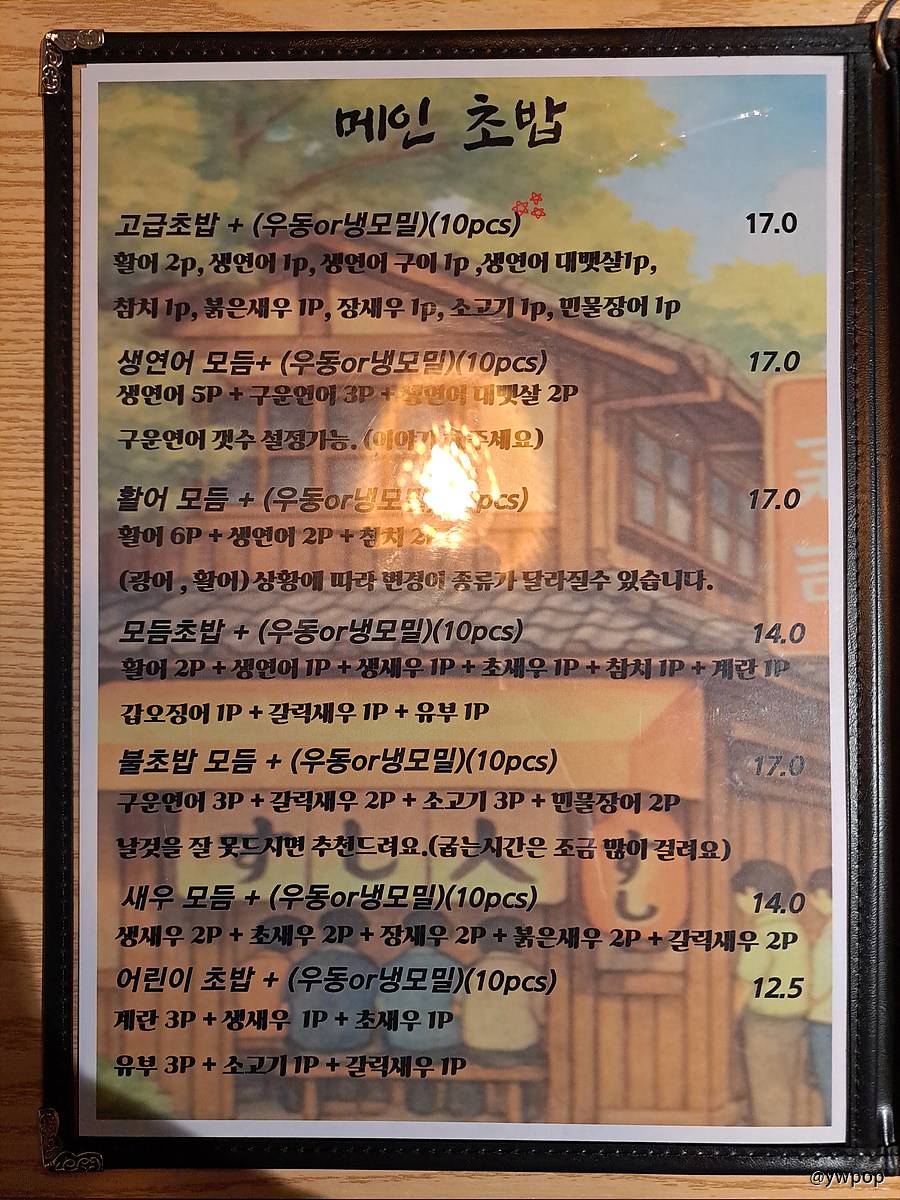 메인 초밥
고급초밥 + (우동or냉모밀)(10pcs) 17.0
활어 2p, 생연어 1p, 생연어 구이 1p ,생연어 대뱃살1p,
참치 1p, 붉은새우 1P, 장새우 1p, 소고기 1p, 민물장어 1p
생연어 모듬+ (우동or냉모밀)(10pcs) 17.0
생연어 5P + 구운연어 3P + 생연어 대뱃살 2P
구운연어 갯수 설정가능.
활어 모듬 + (우동or냉모밀)(10pcs) 17.0
활어 6P + 생연어 2P + 참치 2P
(광어 , 활어) 상황에 따라 변경이 종류가 달라질수 있습니다.
모듬초밥 + (우동or냉모밀)(10pcs) 14.0
활어 2P + 생연어 1P + 생새우 1P + 초새우 1P + 참치 1P + 계란 1P
갑오징어 1P + 갈릭새우 1P + 유부 1P
불초밥 모듬 + (우동or냉모밀)(10pcs) 17.0
구운연어 3P + 갈릭새우 2P + 소고기 3P + 민물장어 2P
날것을 잘 못드시면 추천드려요.(굽는시간은 조금 많이 걸려요)
새우 모듬 + (우동or냉모밀)(10pcs) 14.0
생새우 2P + 초새우 2P + 장새우 2P + 붉은새우 2P + 갈릭새우 2P
어린이 초밥 + (우동or냉모밀)(10pcs) 12.5
계란 3P + 생새우 1P + 초새우 1P
유부 3P + 소고기 1P + 갈릭새우 1P
@ywpop